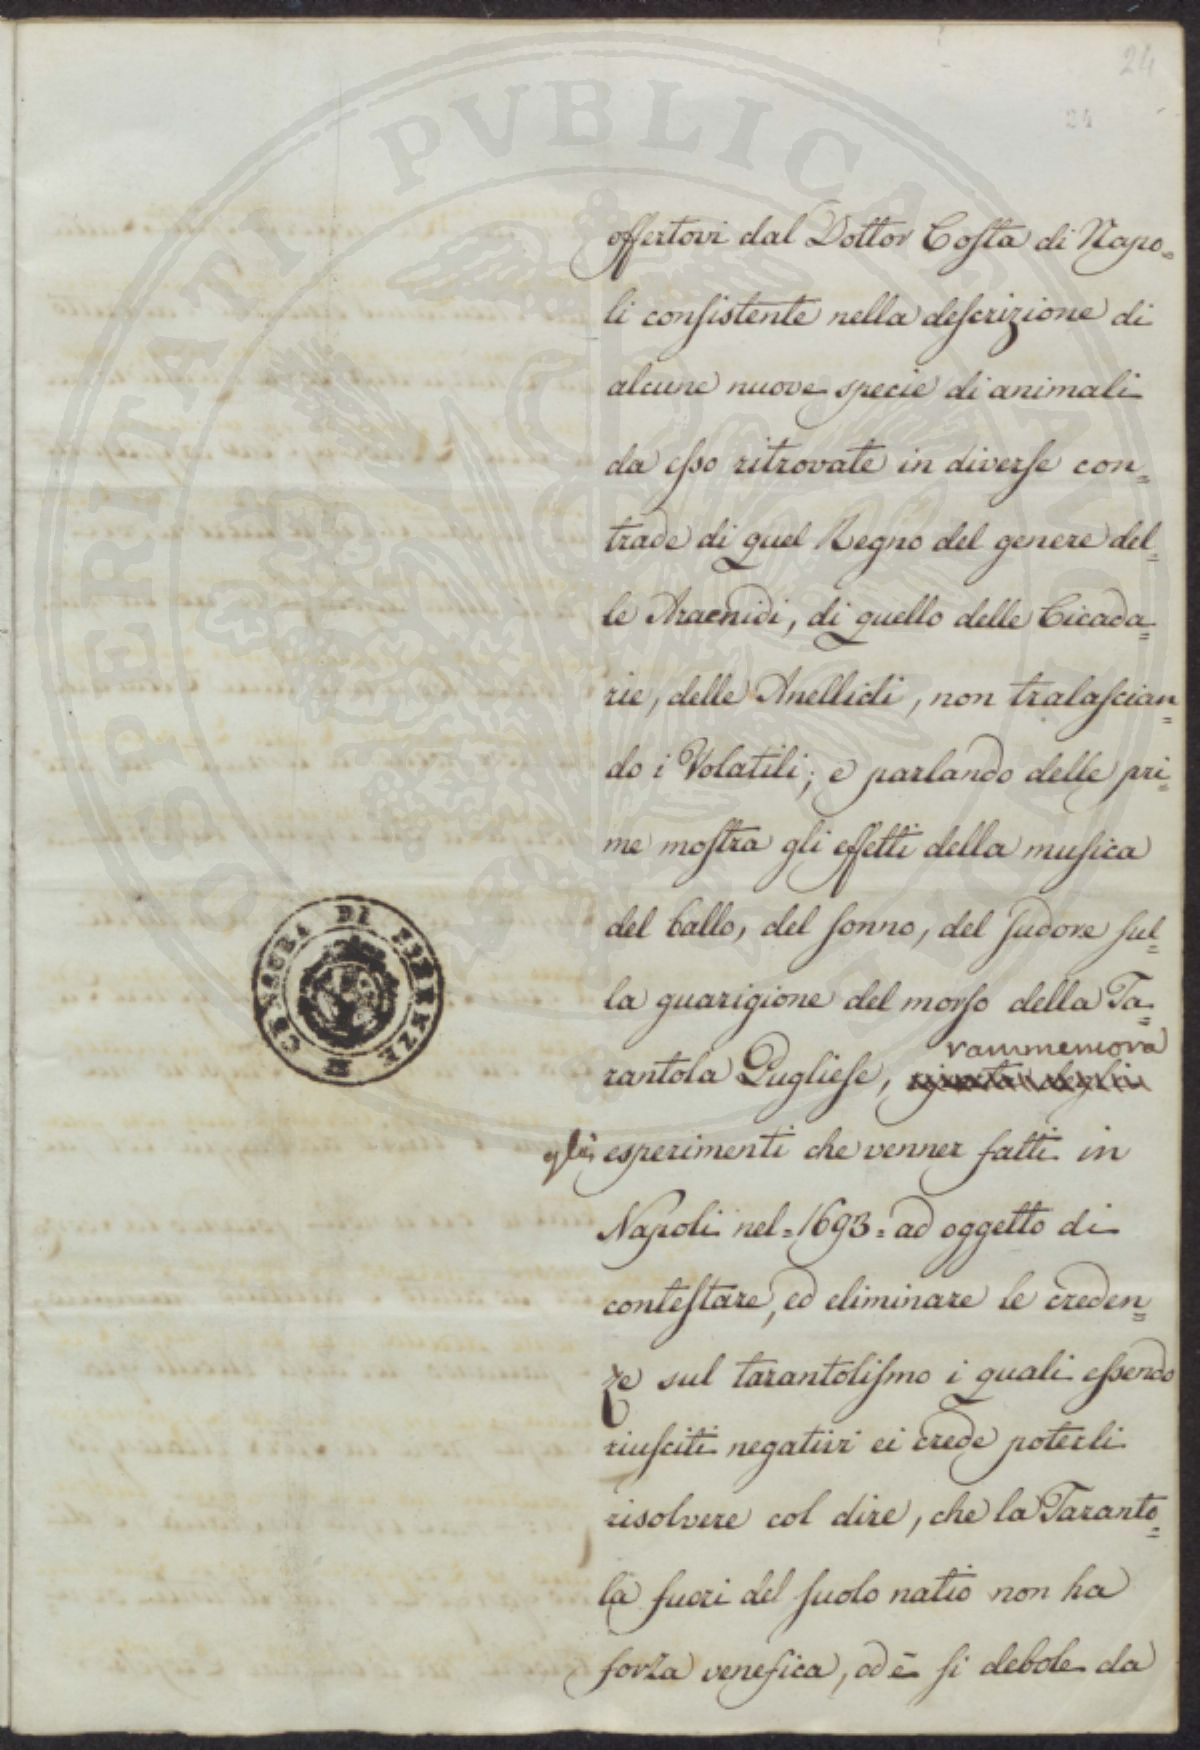 24
24
offertovi dal Dottor Costa di Napo=
li consistente nella descrizione di
alcune nuove specie di animali
da esso ritrovate in diverse con=
trade di quel Regno del genere del=
le Aracnidi, di quello delle Cicada=
rie, delle Anellidi, non tralascian=
do i Volatili; e parlando delle pri=
me mostra gli effetti della musica
del ballo, del sonno, del sudore sul=
la guarigione del morso della Ta=
rammemora
rantola Pugliese,
gli esperimenti che venner fatti in
Napoli nel=1693=ad oggetto di
contestare, ed eliminare le creden=
ze sul tarantolismo i quali essendo
riusciti negativi ei crede poterli
risolvere col dire, che la Taranto=
la fuori del suolo natio non ha
forza venefica, od è si debole da
CENSURA DI FIRENZE
PROSPERITATI PVBLICAE AVGENDAE